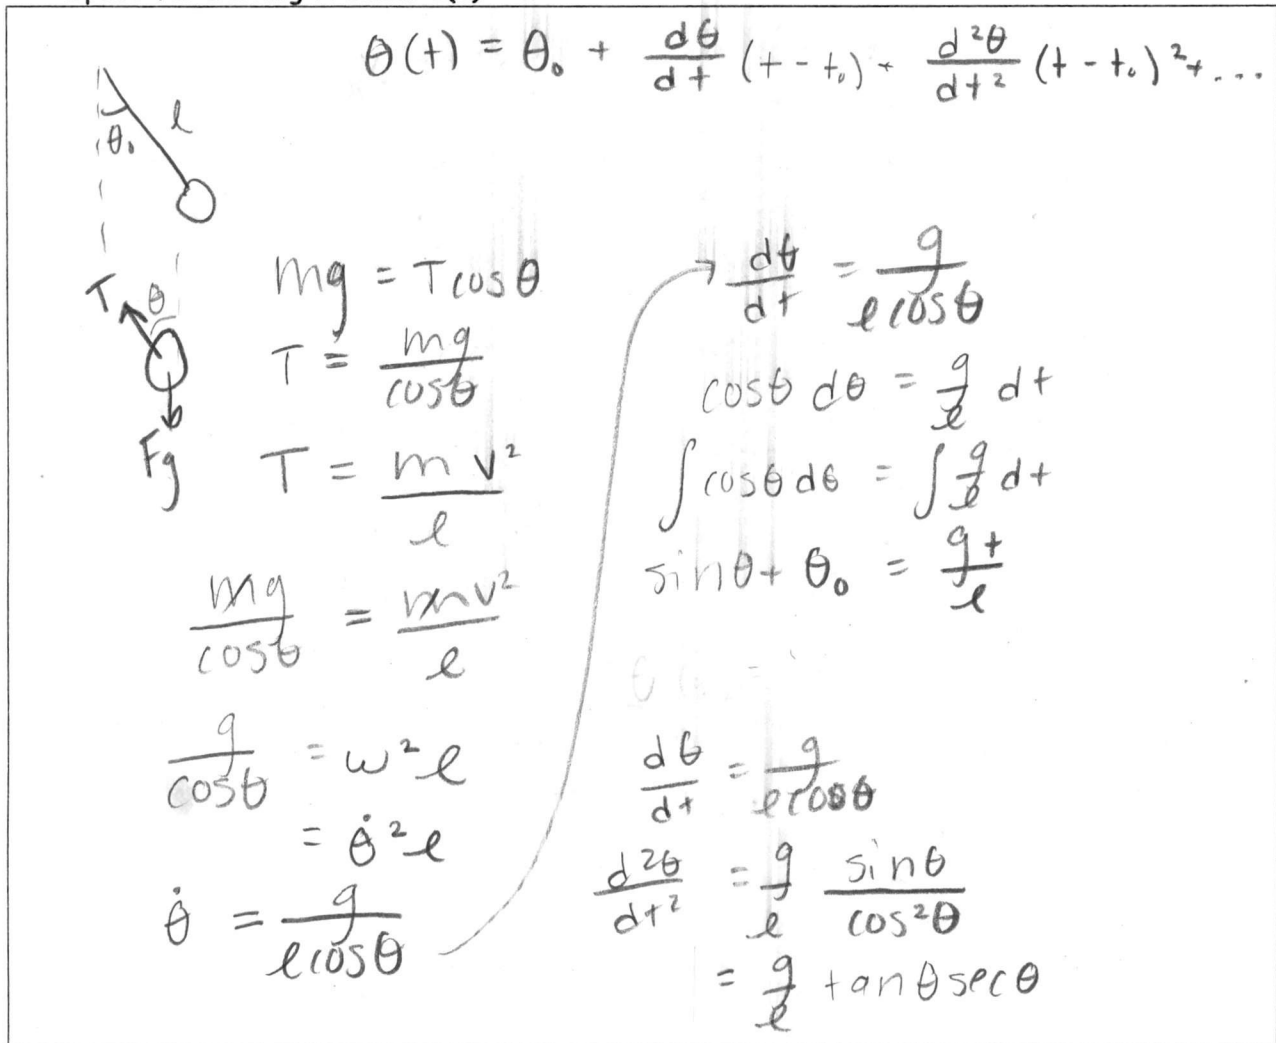 θ(t) = θ₀ + dθ/dt (t - t₀) + d²θ/dt² (t - t₀)² + ...
l
θ₀
T
θ
Fg
mg = T cosθ
T = mg/cosθ
T = m v²/l
mg/cosθ = mv²/l
g/cosθ = ω² l
= θ̇² l
θ̇ = g/(l cosθ)
dθ/dt = g/(l cosθ)
cosθ dθ = g/l dt
∫ cosθ dθ = ∫ g/l dt
sinθ + θ₀ = gt/l
dθ/dt = g/(l cosθ)
d²θ/dt² = g/l sinθ/cos²θ
= g/l tanθ secθ